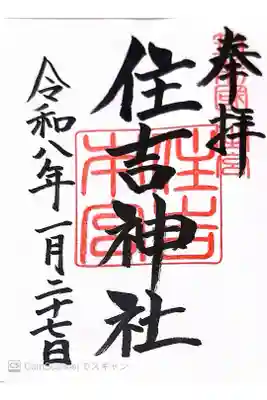 奉拝
住吉神社
住吉本宮
令和八年一月二十七日
CS CamScanner でスキャン